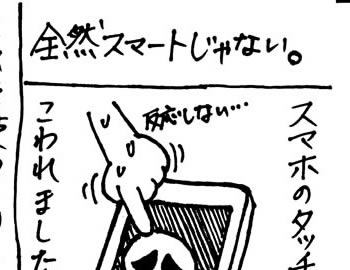 全然スマートじゃない。
スマホのタッチ
反応しない…
こわれました